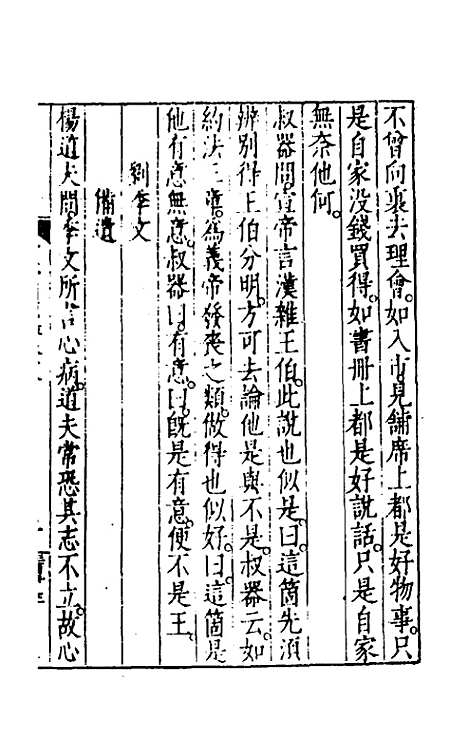 不曾向裏去理會。如入市見鋪席上都是好物事。只
是自家没錢買得。如書冊上都是好說話。只是自家
無奈他何。
叔器問。宣帝言漢雜王伯。此說也似是。曰。這箇先須
辨別得王伯分明。方可去論他是與不是。叔器云。如
約法三章。爲義帝發喪之類。做得也似好。曰。這箇是
他有意無意。叔器曰。有意。曰。旣是有意。便不是王。
劉季文
備遺
楊道夫問。季文所言心病。道夫常恐其志不立。故心